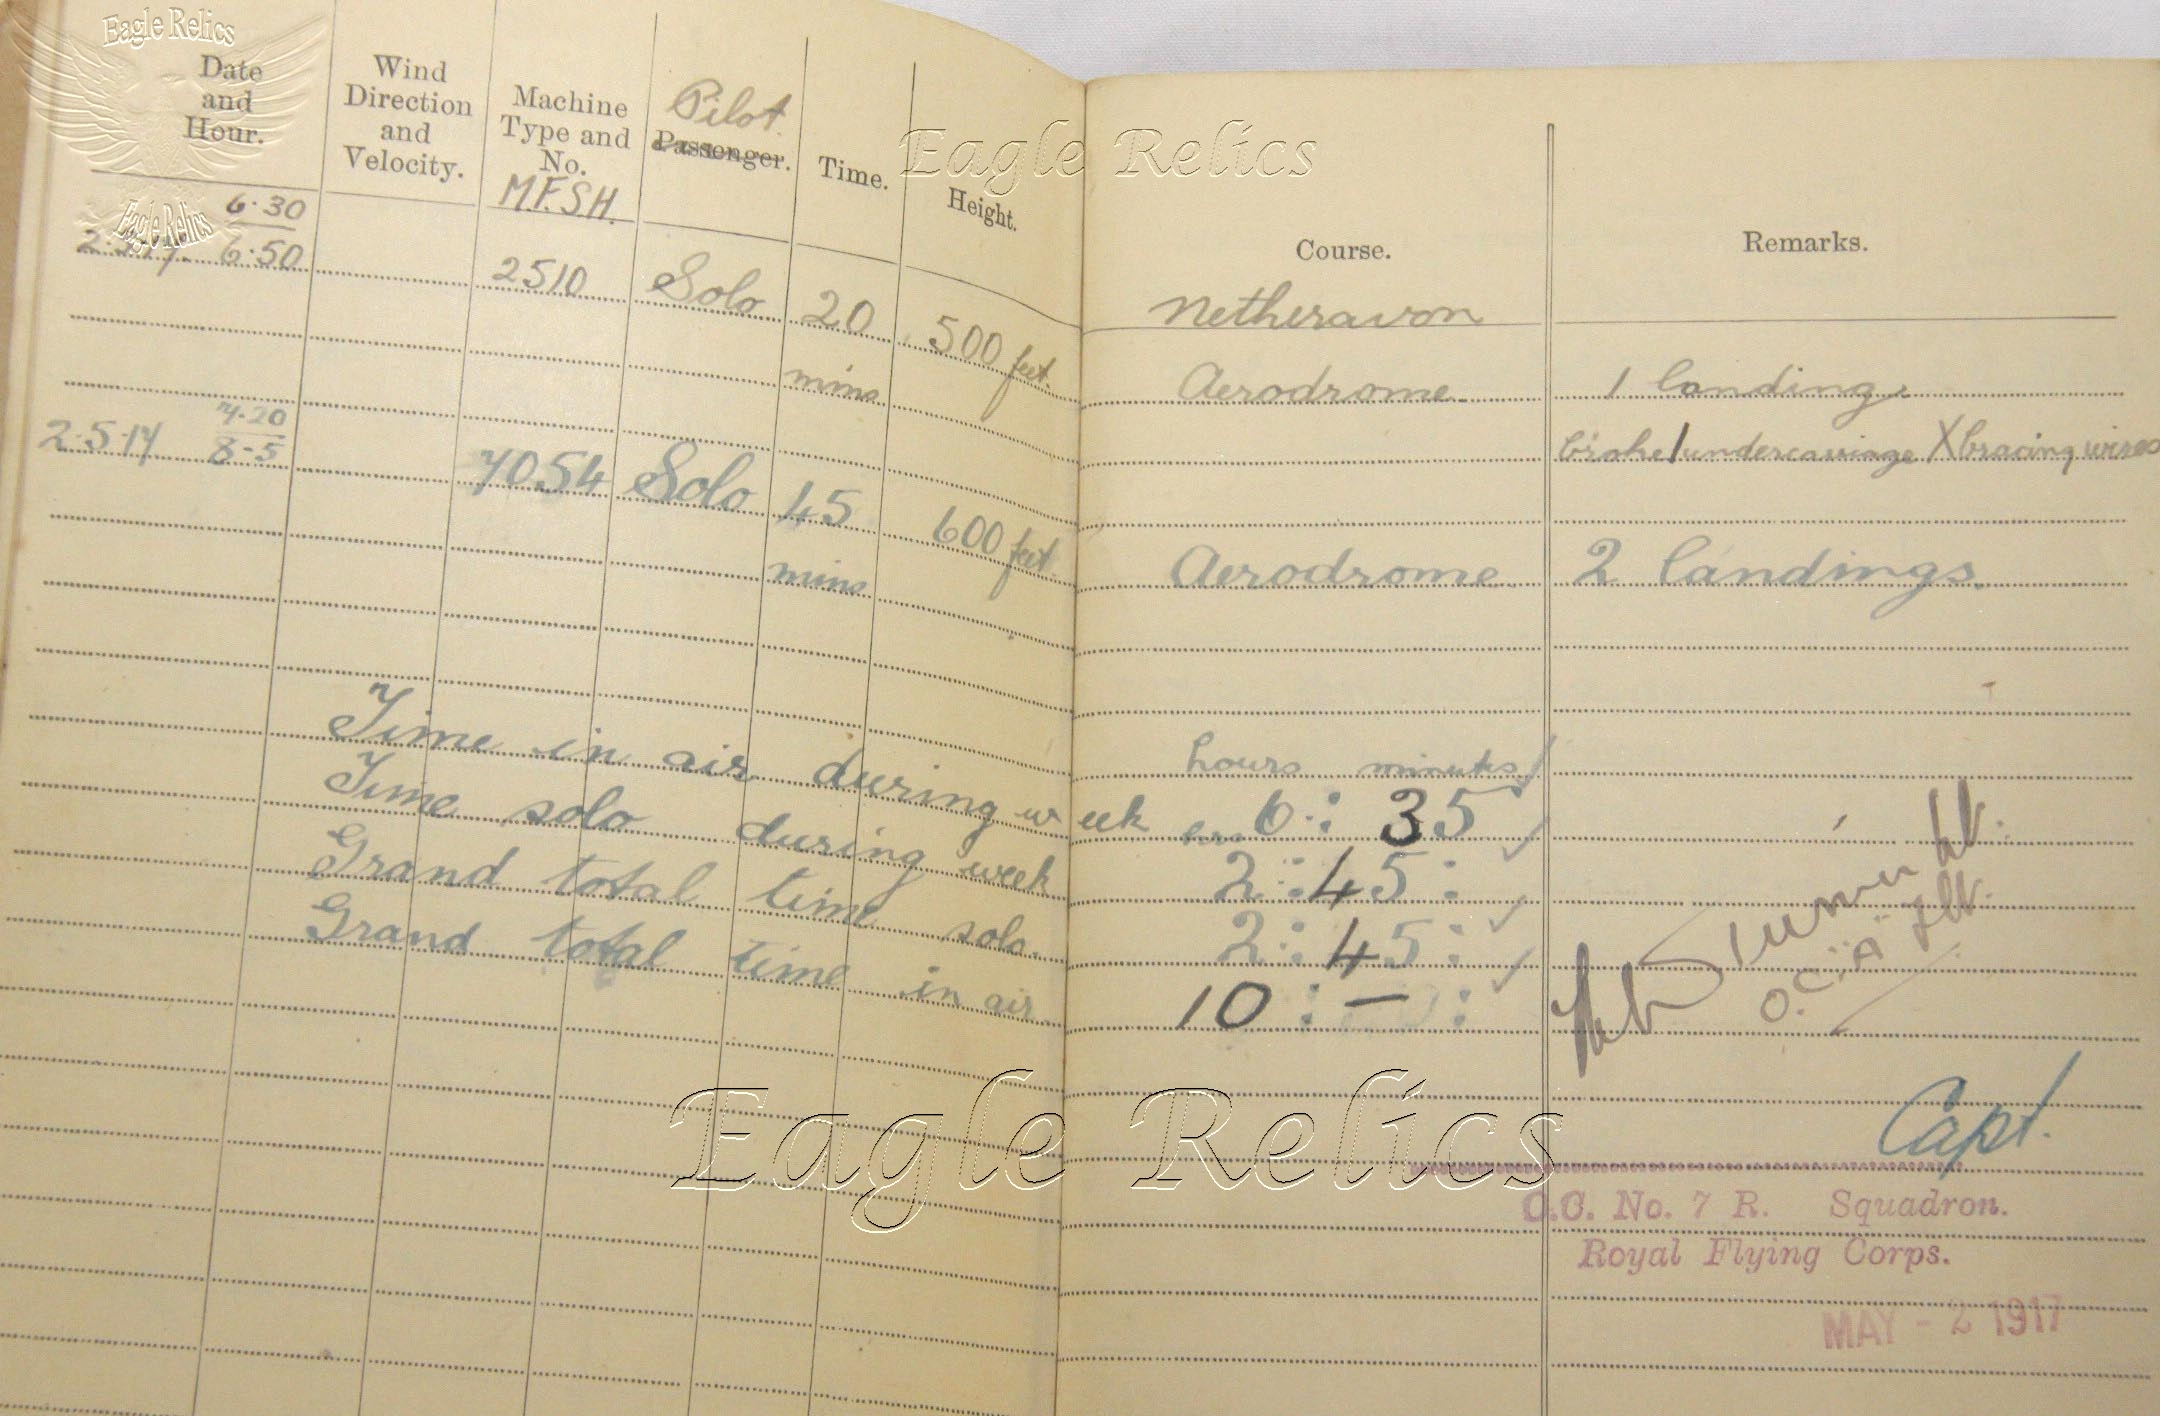 Eagle Relics
Date and Hour.
Wind Direction and Velocity.
Machine Type and No.
Pilot
Passenger.
Time.
Height.
Course.
Remarks.
Eagle Relics
Eagle Relics
M.F.S.H.
Netheravon
6·30
2·5·17. 6·50 2510 Solo 20 500 feet. Aerodrome. 1 landing.
mins
broke/undercarriage X bracing wires
7·20
2·5·17 8-5 7054 Solo 45 600 feet. Aerodrome. 2 landings.
mins
hours minutes
Time in air during week 6 : 35
Time solo during week 2 : 45 :
Grand total time solo. 2 : 45 :
Grand total time in air. 10 : – :
O.C. "A" Flt.
Capt.
O.C. No. 7 R. Squadron.
Royal Flying Corps.
MAY - 2 1917
Eagle Relics